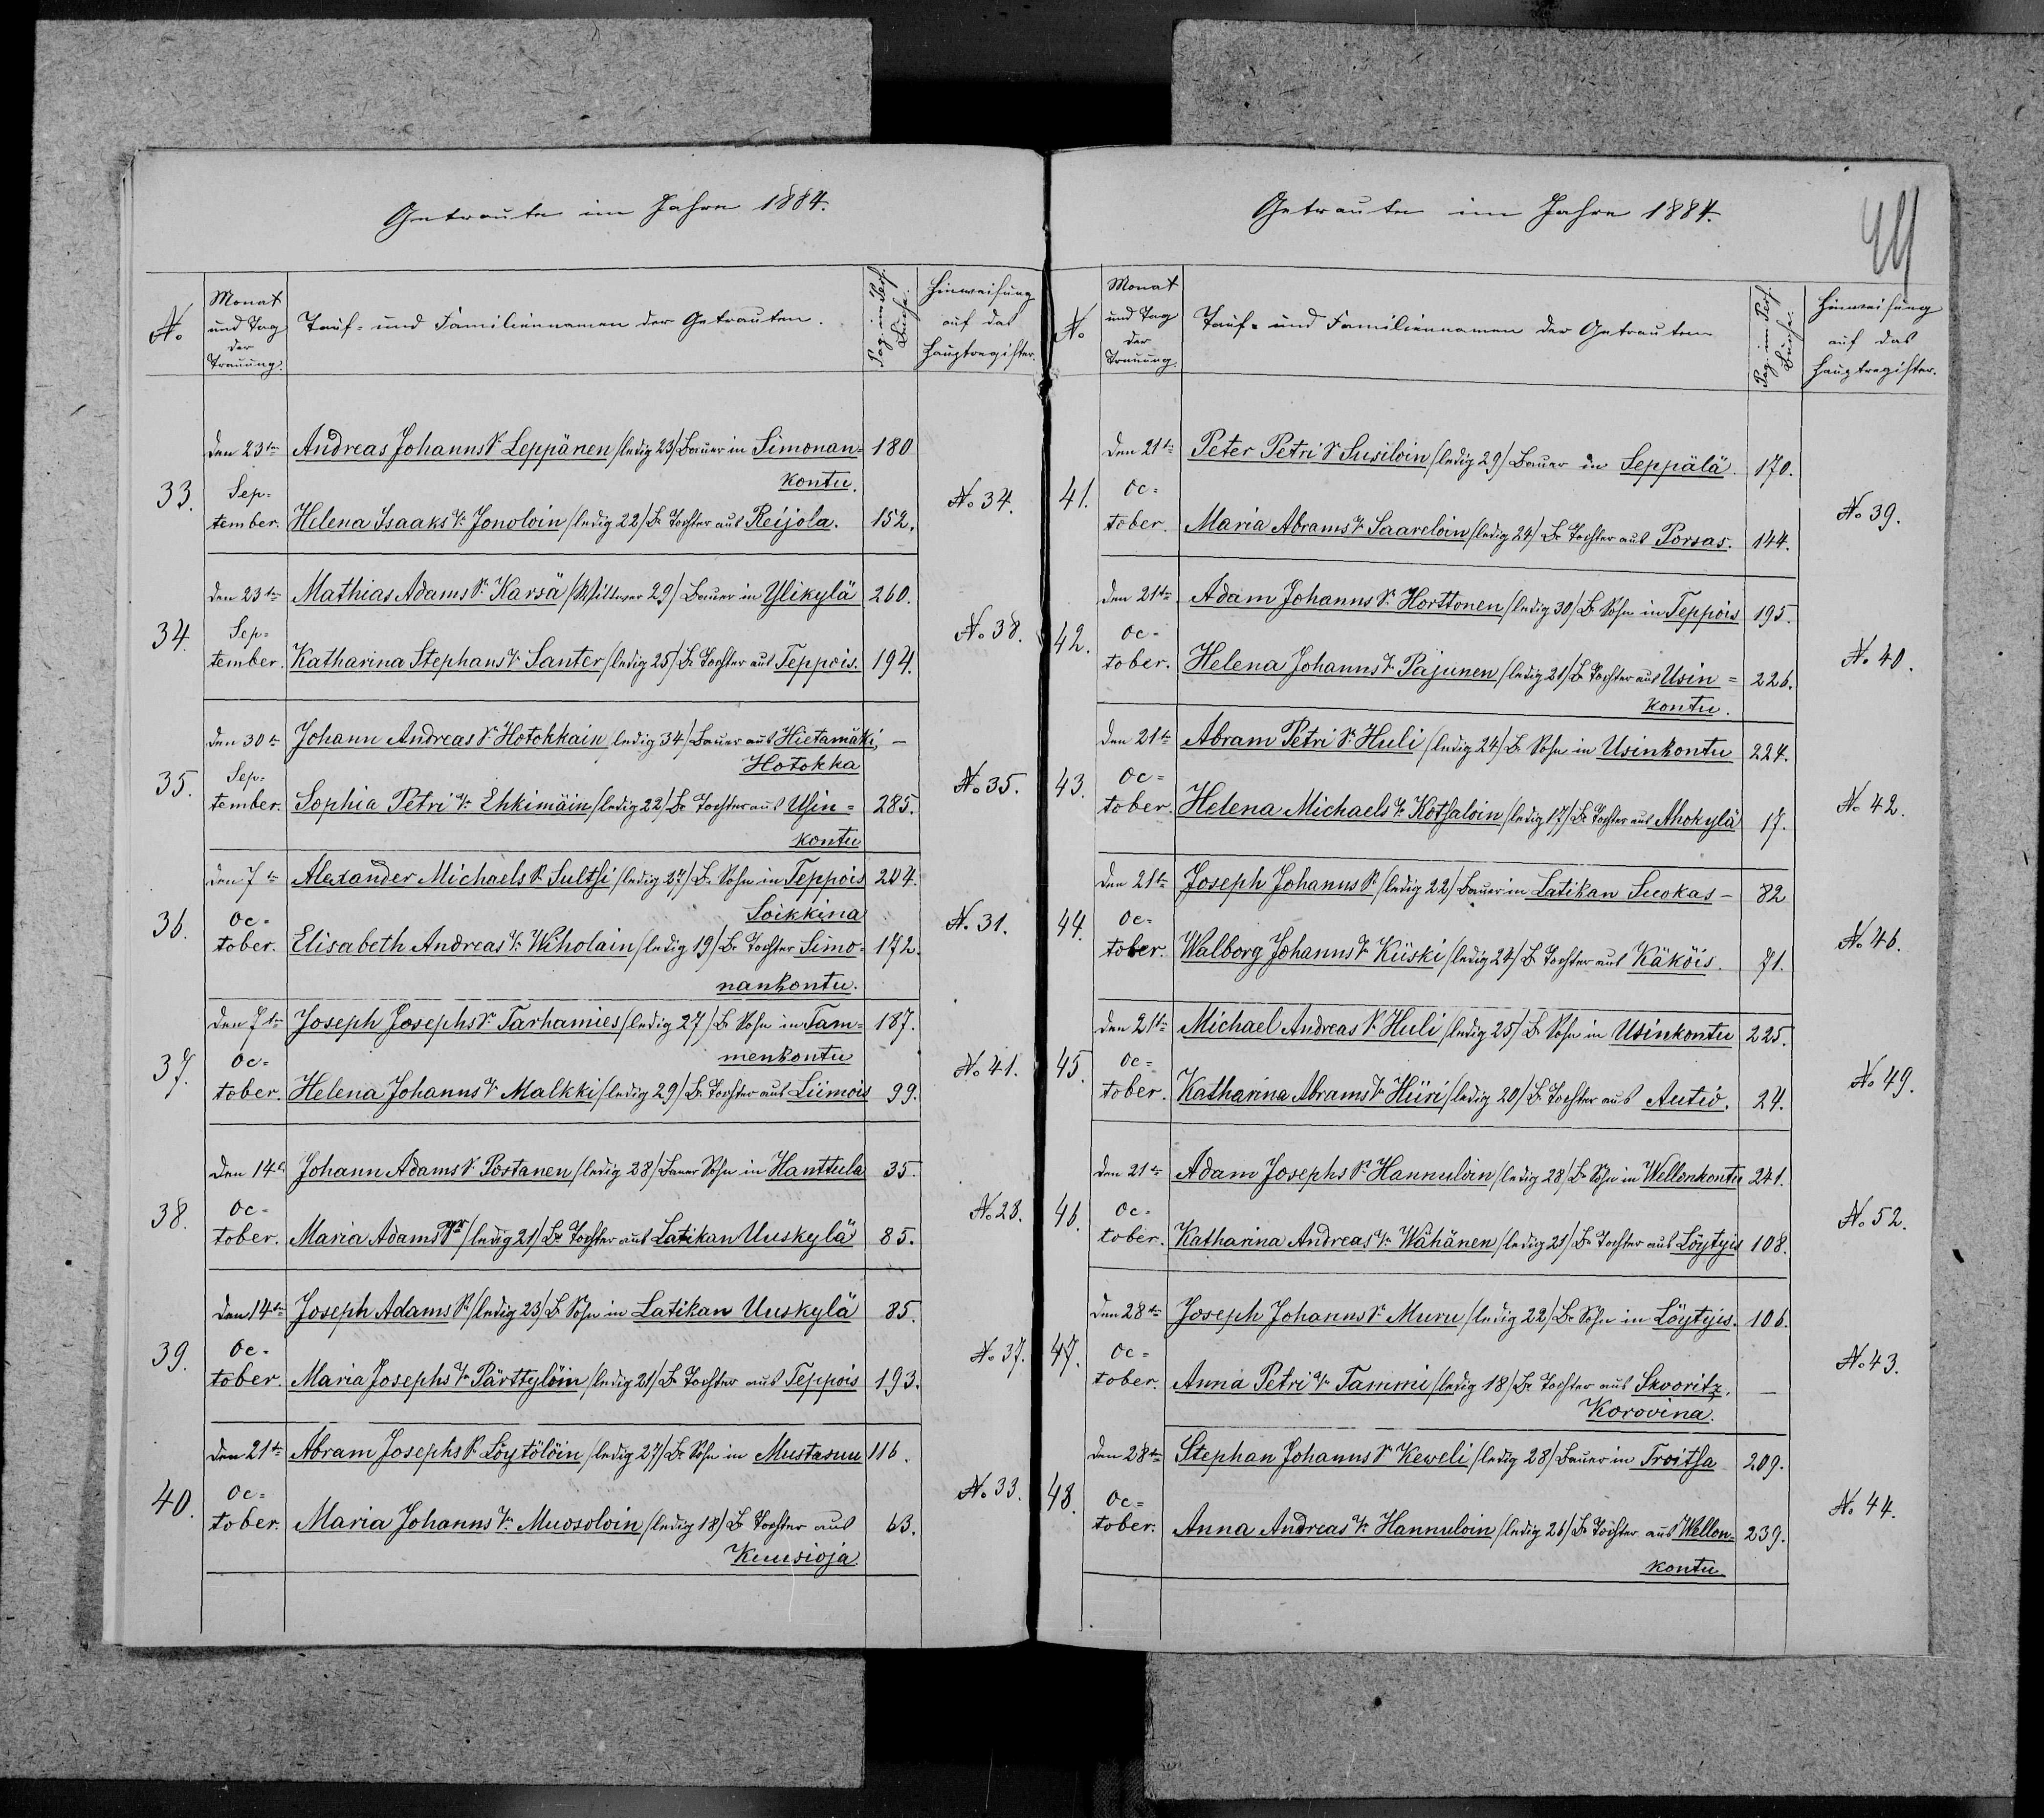 Getraute im Jahre 1884.
No
Monat und Tag der Trauung.
Tauf- und Familiennamen der Getrauten.
Pag. im Pers. Buche.
Hinweisung auf das Hauptregister.
den 23ten Andreas Johanns S. Leppänen /ledig 23/ Bauer in Simonan= 180
kontu.
33. Sep= No 34.
tember. Helena Isaaks T. Jonoloin /ledig 22/ B. Tochter aus Reijola. 152.
den 23ten Mathias Adams S. Karsä /Wittwer 29/ Bauer in Ylikylä 260.
34. Sep= No 38.
tember. Katharina Stephans T. Santer /ledig 25/ B. Tochter aus Teppois. 194.
den 30t Johann Andreas S. Hotokkain /ledig 34/ Bauer aus Hietamäki, —
Hotokka
35. Sep= No 35.
tember. Sophia Petri T. Ehkimäin /ledig 22/ B. Tochter aus Usin= 285.
kontu
den 7t Alexander Michaels S. Sultsi /ledig 27/ B. Sohn in Teppois 204.
Soikkina
36. Oc= No 31.
tober. Elisabeth Andreas T. Wiholain /ledig 19/ B. Tochter Simo= 172.
nankontu.
den 7ten Joseph Josephs S. Tarhamies /ledig 27/ B. Sohn in Tam= 187.
menkontu
37. Oc= No 41.
tober. Helena Johanns T. Malkki /ledig 29/ B. Tochter aus Liimois 99.
den 14t Johann Adams S. Postanen /ledig 28/ Bauer Sohn in Hanttula 35.
38. Oc= No 28.
tober. Maria Adams T. /ledig 21/ B. Tochter aus Latikan Uuskylä 85.
den 14ten Joseph Adams S. /ledig 23/ B. Sohn in Latikan Uuskylä 85.
39. Oc= No 37.
tober. Maria Josephs T. Pärttylöin /ledig 21/ B. Tochter aus Teppois 193.
den 21t Abram Josephs S. Löytölöin /ledig 27/ B. Sohn in Mustasuu 116.
40. Oc= No 33.
tober. Maria Johanns T. Muosoloin /ledig 18/ B. Tochter aus 63.
Kuusioja
Getraute im Jahre 1884.
No
Monat und Tag der Trauung.
Tauf- und Familiennamen der Getrauten
Pag. im Pers. Buche.
Hinweisung auf das Hauptregister.
den 21t Peter Petri S. Susiloin /ledig 29/ Bauer in Seppälä 170.
41. Oc= No 39.
tober. Maria Abrams T. Saareloin /ledig 24/ B. Tochter aus Porsas. 144.
den 21ten Adam Johanns S. Horttonen /ledig 30/ B. Sohn in Teppois 195.
42. Oc= No 40.
tober. Helena Johanns T. Pajunen /ledig 21/ B. Tochter aus Usin= 226.
kontu.
den 21t Abram Petri S. Huli /ledig 24/ B. Sohn in Usinkontu 224.
43. Oc= No 42.
tober. Helena Michaels T. Kotsaloin /ledig 17/ B. Tochter aus Ahokylä 17.
den 21ten Joseph Johanns S. /ledig 22/ Bauer in Latikan Suokas — 82
44. Oc= No 46.
tober. Walborg Johanns T. Kiiski /ledig 24/ B. Tochter aus Käköis. 71.
den 21ten Michael Andreas S. Huli /ledig 25/ B. Sohn in Usinkontu 225.
45. Oc= No 49.
tober. Katharina Abrams T. Hiiri /ledig 20/ B. Tochter aus Autio. 24.
den 21t Adam Josephs S. Hannuloin /ledig 28/ B. Sohn in Wellonkontu 241.
46. Oc= No 52.
tober. Katharina Andreas T. Wähänen /ledig 21/ B. Tochter aus Löytyis 108.
den 28t Joseph Johanns S. Muru /ledig 22/ B. Sohn in Löytyis. 106.
47. Oc= No 43.
tober. Anna Petri T. Tammi /ledig 18/ B. Tochter aus Skooritz, —
Korovina.
den 28t Stephan Johanns S. Keweli /ledig 28/ Bauer in Troitsa 209.
48. Oc= No 44.
tober. Anna Andreas T. Hannuloin /ledig 26/ B. Tochter aus Wellon= 239.
kontu